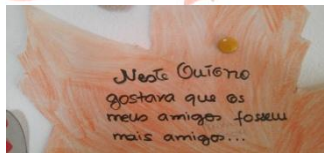 Neste Outono
gostava que os
meus amigos fossem
mais amigos...